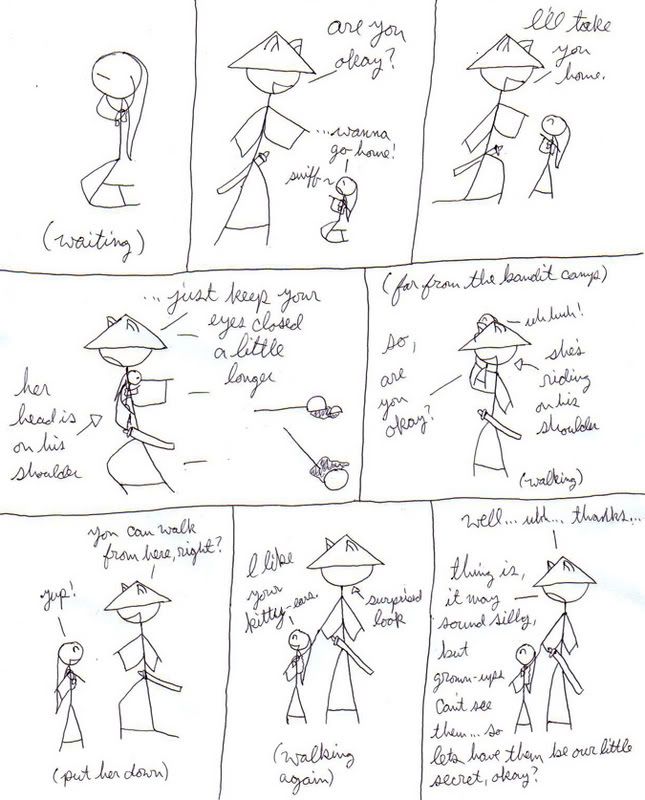 (waiting)
are you
okay?
...wanna
go home!
sniff~
I'll take
you
home.
... just keep your
eyes closed
a little
longer
her
head is
on his
shoulder
(far from the bandit camps)
uh huh!
so,
are
you
okay?
she's
riding
on his
shoulder
(walking)
you can walk
from here, right?
yup!
(put her down)
I like
your
kitty-ears.
surprised
look
(walking
again)
well... uh... thanks...
thing is,
it may
sound silly,
but
grown-ups
Can't see
them... so
lets have them be our little
secret, okay?